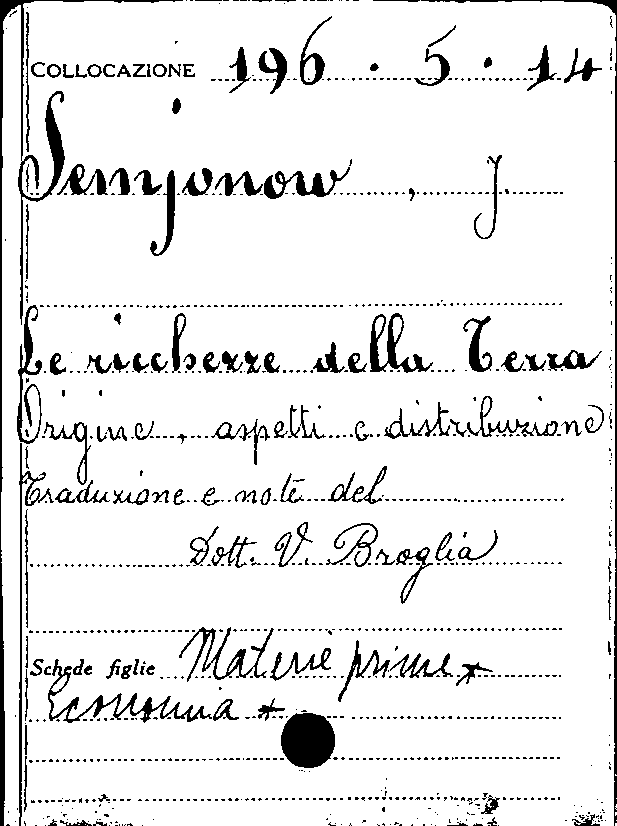 COLLOCAZIONE 196 . 5 . 14
Semjonow , J.
Le ricchezze della Terra
Origine, aspetti e distribuzione
Traduzione e note del
Dott. V. Broglia
Schede figlie Materie prime *
Economia *